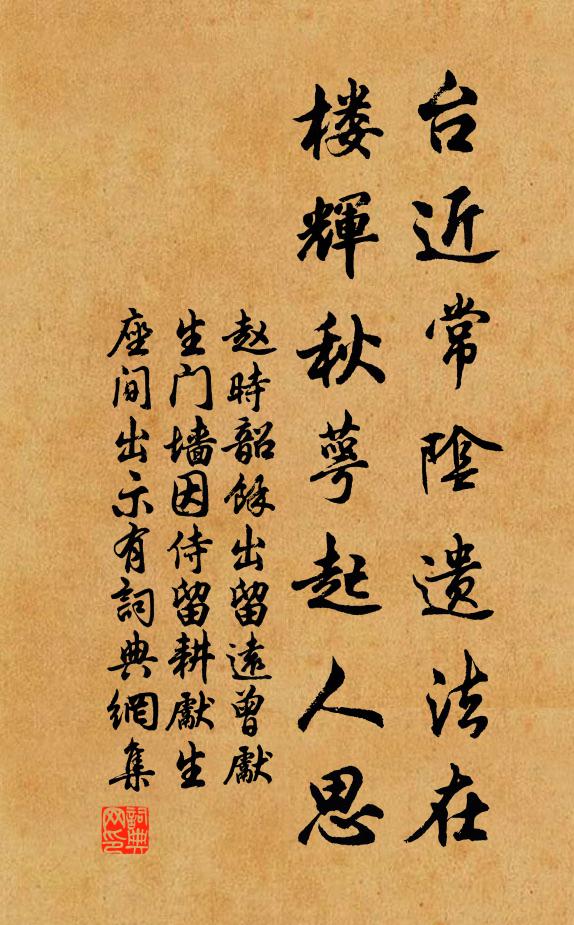 台近常陰遗法在
楼輝秋萼起人思
赵時韶餘出留遠曾獻
生门墙因侍留耕獻生
座间出示有詞典網集
詞典
网印